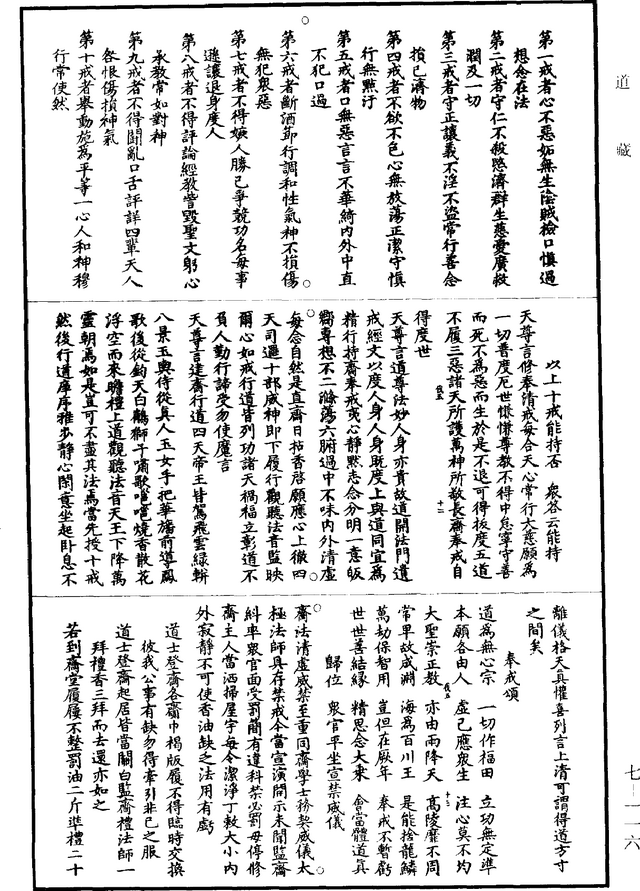 道藏
第一戒者心不惡妬無生陰賊檢口慎過
想念在法
第二戒者守仁不殺愍濟群生慈愛廣救
潤及一切
第三戒者守正讓義不淫不盜常行善念
損己濟物
第四戒者不欲不色心無放蕩正潔守慎
行無點汙
第五戒者口無惡言言不華綺內外中直
不犯口過
第六戒者斷酒節行調和性氣神不損傷
無犯眾惡
第七戒者不得嫉人勝己爭競功名每事
遜讓退身度人
第八戒者不得評論經教訾毀聖文躬心
承教常如對神
第九戒者不得鬪亂口舌評詳四輩天人
各恨傷損神氣
第十戒者舉動施為平等一心人和神穆
行常使然
以上十戒能持否 眾各云能持
天尊言修奉清戒每合天心常行大慈願為
一切普度厄世慊慊尊教不得中怠寧守善
而死不為惡而生於是不退可得拔度五道
不履三惡諸天所護萬神所敬長齋奉戒自
得度世
天尊言道尊法妙人身亦貴故道開法門遺
戒經文以度人身人身既度上與道同宜為
精行持齋奉戒夷心靜默志念分明一意皈
嚮專想不二滌蕩六腑過中不味內外清虛
每念自然是直齋日拈香啓願應心上徹四
天司邏十部威神即下履行觀聽法音監映
爾心如戒行道皆列功諸天禍福立彰道不
負人勤行諦受勿使魔言
天尊言建齋行道四天帝王皆駕飛雲綠軿
八景玉輿侍從真人玉女手把華旛前導鳳
歌後從鈞天白鶴獅子嘯歌邕邕燒香散花
浮空而來瞻禮上道觀聽法音天王下降萬
靈朝焉如是豈可不盡其法焉當先授十戒
然後行道庠序雅步靜心閉意坐起臥息不
離儀格天真懽喜列言上清可謂得道方寸
之間矣
奉戒頌
道為無心宗 一切作福田 立功無定準
本願各由人 虛己應眾生 注心莫不均
大聖崇正教 亦由雨降天 高陵靡不周
常卑故成淵 海為百川王 是能捨龍鱗
萬劫保智用 豈但在厥年 奉戒不暫虧
世世善結緣 精思念大乘 會當體道真
歸位 眾官平坐宣禁威儀
齋法清虛威禁至重同齋學士務契威儀太
極法師具存禁戒今當宣演開示未聞監齋
糾率眾官面受罰簡有違科禁必罰毋停修
齋主人當洒掃屋宇每令潔淨丁敕大小內
外寂靜不可使香油缺之法用有虧
道士登齋各齎巾褐版履不得臨時交換
彼我公事有缺勿得牽引非己之服
道士登齋起居皆當關白監齋禮法師一
拜禮香三拜而去還亦如之
若到齋堂履屨不整罰油二斤準禮二十
七一一一六